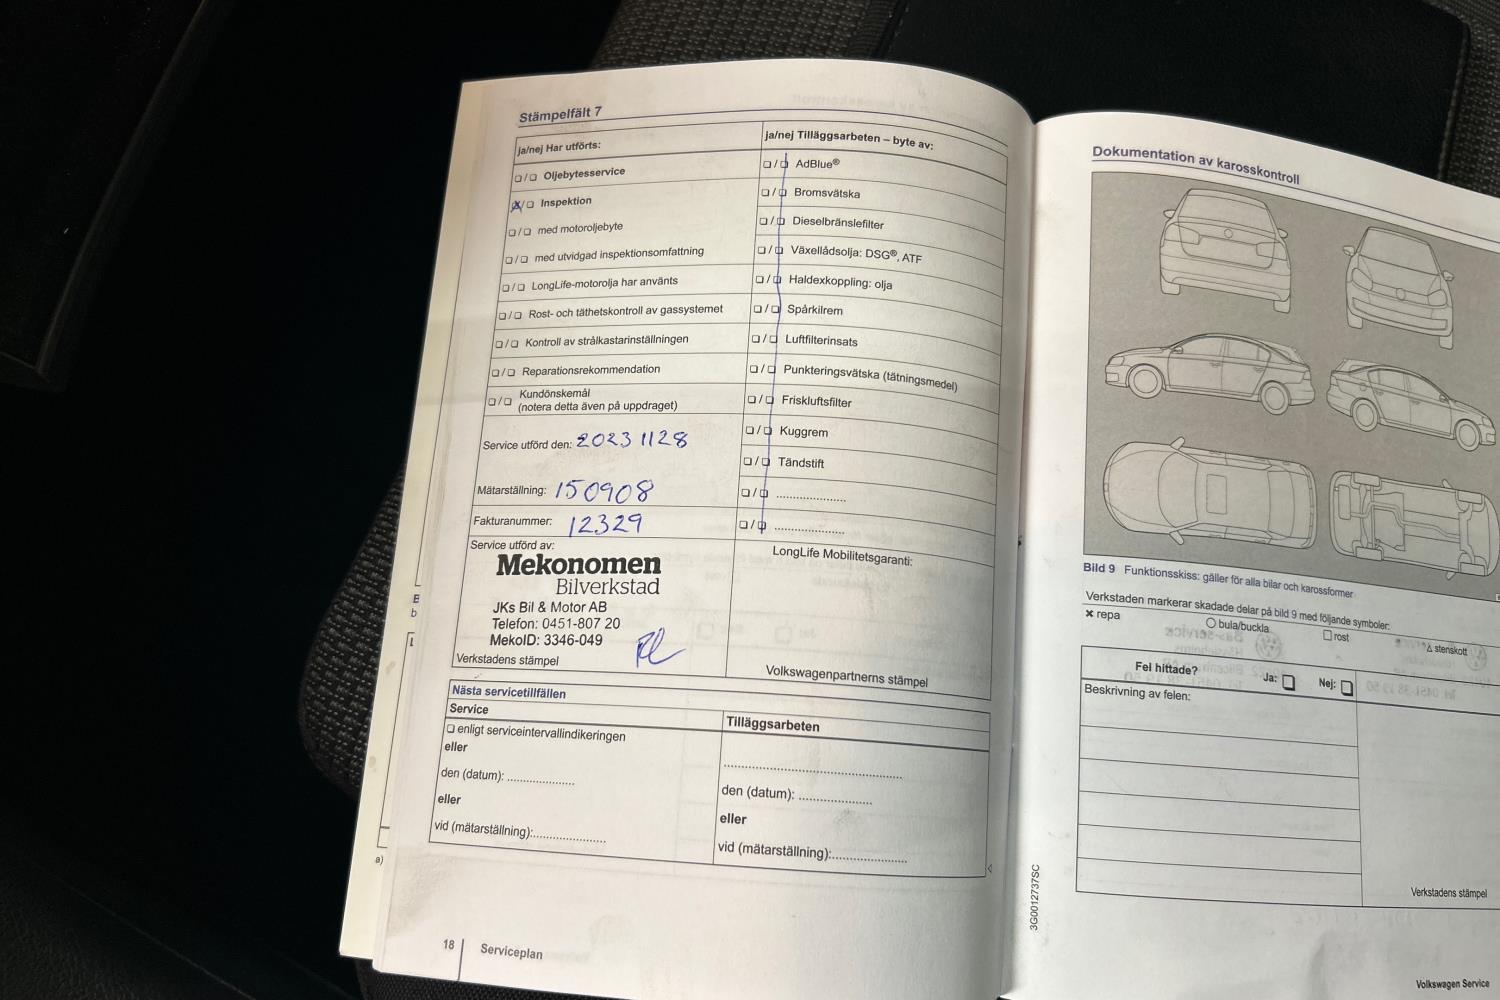 Stämpelfält 7
ja/nej Har utförts:
❏ / ❏ Oljebytesservice
❏ / ❏ Inspektion
❏ / ❏ med motoroljebyte
❏ / ❏ med utvidgad inspektionsomfattning
❏ / ❏ LongLife-motorolja har använts
❏ / ❏ Rost- och täthetskontroll av gassystemet
❏ / ❏ Kontroll av strålkastarinställningen
❏ / ❏ Reparationsrekommendation
❏ / ❏ Kundönskemål
(notera detta även på uppdraget)
Service utförd den: 20231128
Mätarställning: 150908
Fakturanummer: 12329
Service utförd av:
Mekonomen
Bilverkstad
JKs Bil & Motor AB
Telefon: 0451-807 20
MekoID: 3346-049
Verkstadens stämpel
ja/nej Tilläggsarbeten – byte av:
❏ / ❏ AdBlue®
❏ / ❏ Bromsvätska
❏ / ❏ Dieselbränslefilter
❏ / ❏ Växellådsolja: DSG®, ATF
❏ / ❏ Haldexkoppling: olja
❏ / ❏ Spårkilrem
❏ / ❏ Luftfilterinsats
❏ / ❏ Punkteringsvätska (tätningsmedel)
❏ / ❏ Friskluftsfilter
❏ / ❏ Kuggrem
❏ / ❏ Tändstift
❏ / ❏ .....................
❏ / ❏ .....................
LongLife Mobilitetsgaranti:
Volkswagenpartnerns stämpel
Nästa servicetillfällen
Service
❏ enligt serviceintervallindikeringen
eller
den (datum): ....................
eller
vid (mätarställning):.....................
Tilläggsarbeten
..................................................
den (datum): .....................
eller
vid (mätarställning):.....................
18 Serviceplan
a)
Dokumentation av karosskontroll
Bild 9 Funktionsskiss: gäller för alla bilar och karossformer
Verkstaden markerar skadade delar på bild 9 med följande symboler:
✖ repa
○ bula/buckla
❏ rost
△ stenskott
Fel hittade? Ja: ❏ Nej: ❏
Beskrivning av felen:
Verkstadens stämpel
3G0012737SC
Volkswagen Service